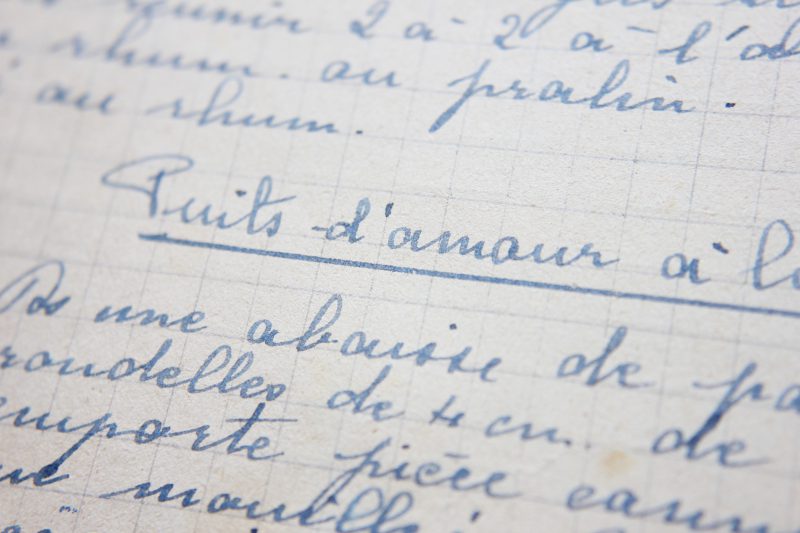 réunir 2 à 2 à l'a
rhum. ou pralin.
au rhum.
Puits d'amour à la
Ds une abaisse de pa
rondelles de 4 cm. de
emporte pièce cann
mouill